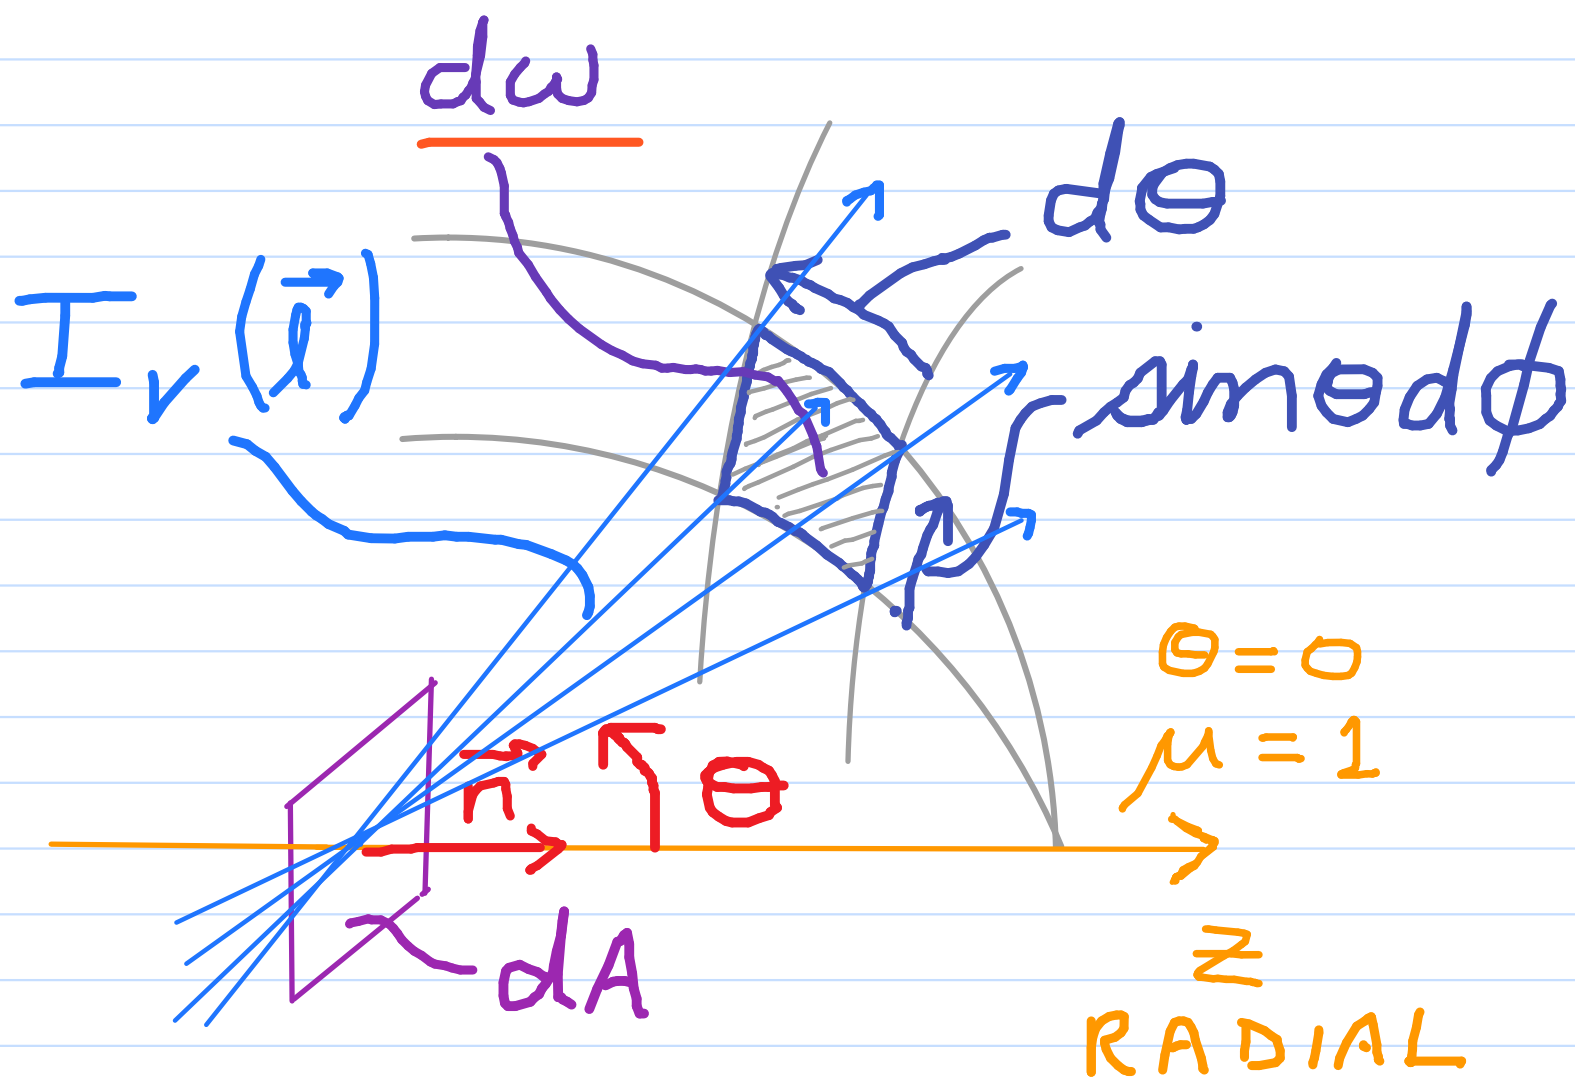 dω
dθ
I_ν (l⃗)
sinθdϕ
θ=0
μ=1
n⃗
θ
dA
Z
RADIAL